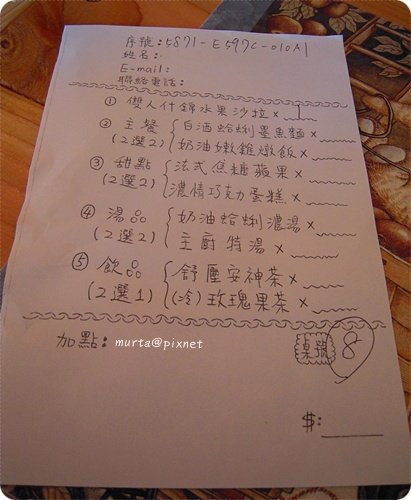 序號:5871-E597C-010A1
姓名:
E-mail:
聯絡電話:
① 雙人什錦水果沙拉× 1
② 主餐 (2選2) 白酒蛤蜊墨魚麵×
奶油嫩雞燉飯×
③ 甜點 (2選2) 法式焦糖蘋果×
濃情巧克力蛋糕×
④ 湯品 (2選2) 奶油蛤蜊濃湯×
主廚特湯×
⑤ 飲品 (2選1) 舒壓安神茶×
(冷)玫瑰果茶×
加點:
murta@pixnet
桌號 8
$: